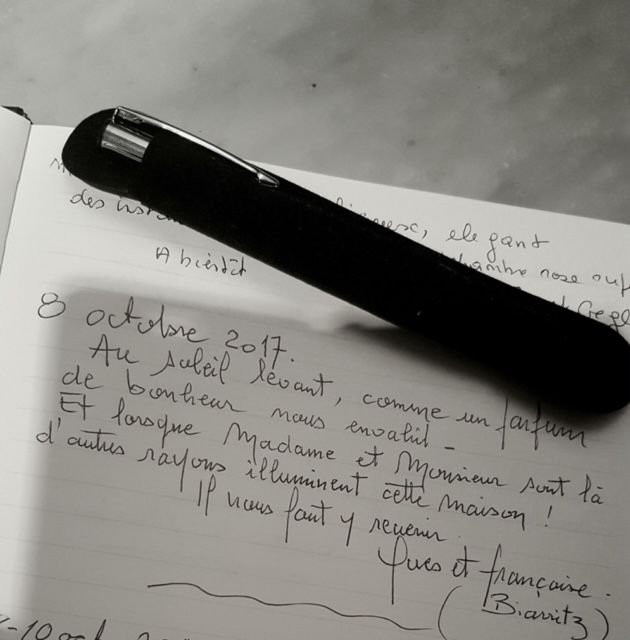 des
, elegant
chambre rose
A bientôt
8 octobre 2017.
Au soleil levant, comme un parfum
de bonheur nous envahit -
Et lorsque Madame et Monsieur sont là
d'autres rayons illuminent cette maison !
Il nous faut y revenir.
Yves et françoise.
(Biarritz)